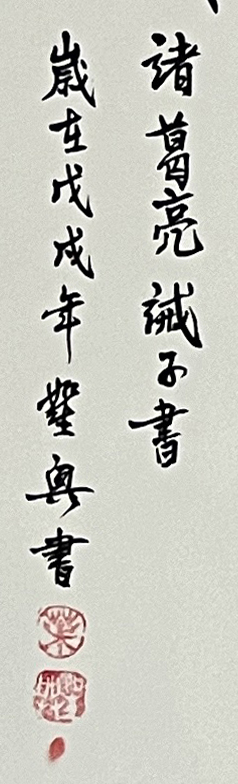 諸葛亮誡子書
歲在戊戌年
書